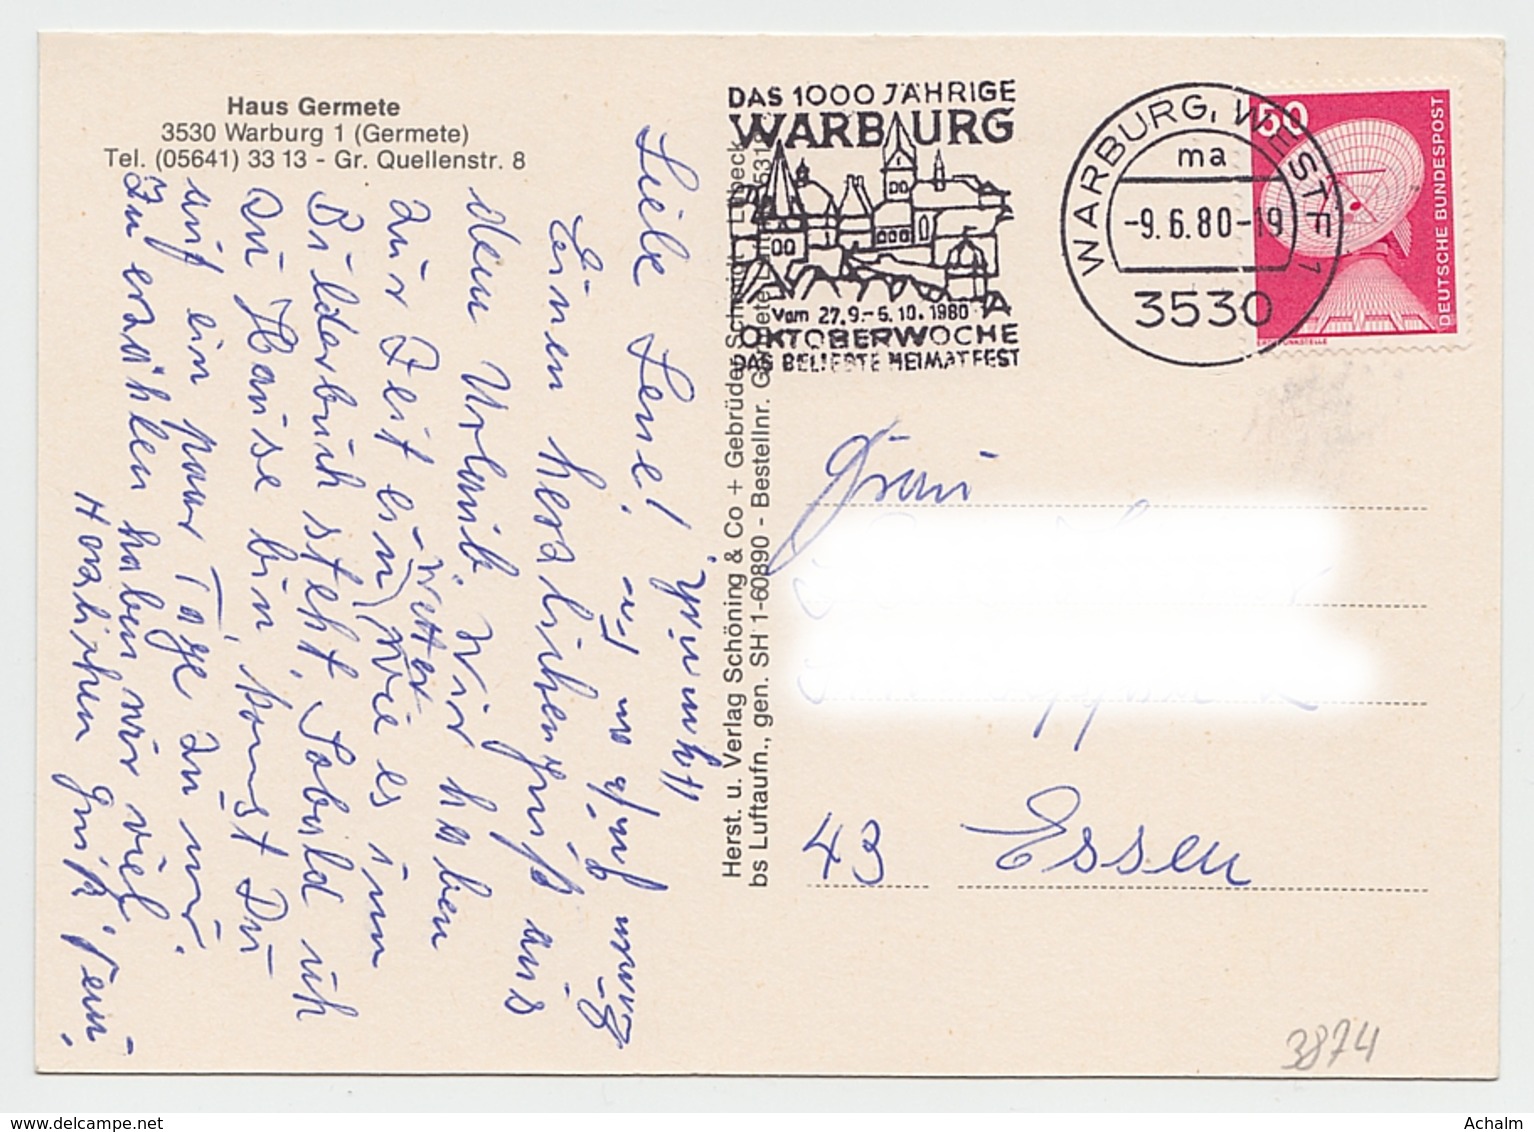 Haus Germete
3530 Warburg 1 (Germete)
Tel. (05641) 33 13 - Gr. Quellenstr. 8
Liebe Lene!
Einen herzlichen Gruß aus
dem Urlaub. Wir haben
zur Zeit ein Wetter, wie es im
Bilderbuch steht. Sobald ich
zu Hause bin, komst Du
auf ein paar Tage zu mir.
Zu erzählen haben wir viel.
Herzlichen Gruß
Herst. u. Verlag Schöning & Co + Gebrüder Schmidt, Lübeck
bs Luftaufn., gen. SH 1-60890 - Bestellnr.
DAS 1000 JÄHRIGE
WARBURG
Vom 27.9.-5.10.1980
OKTOBERWOCHE
DAS BELIEBTE HEIMATFEST
WARBURG, WESTF 1
ma
-9.6.80-19
3530
50
DEUTSCHE BUNDESPOST
ERDFUNKSTELLE
Frau
43 Essen
3874
delcampe.net
Achalm